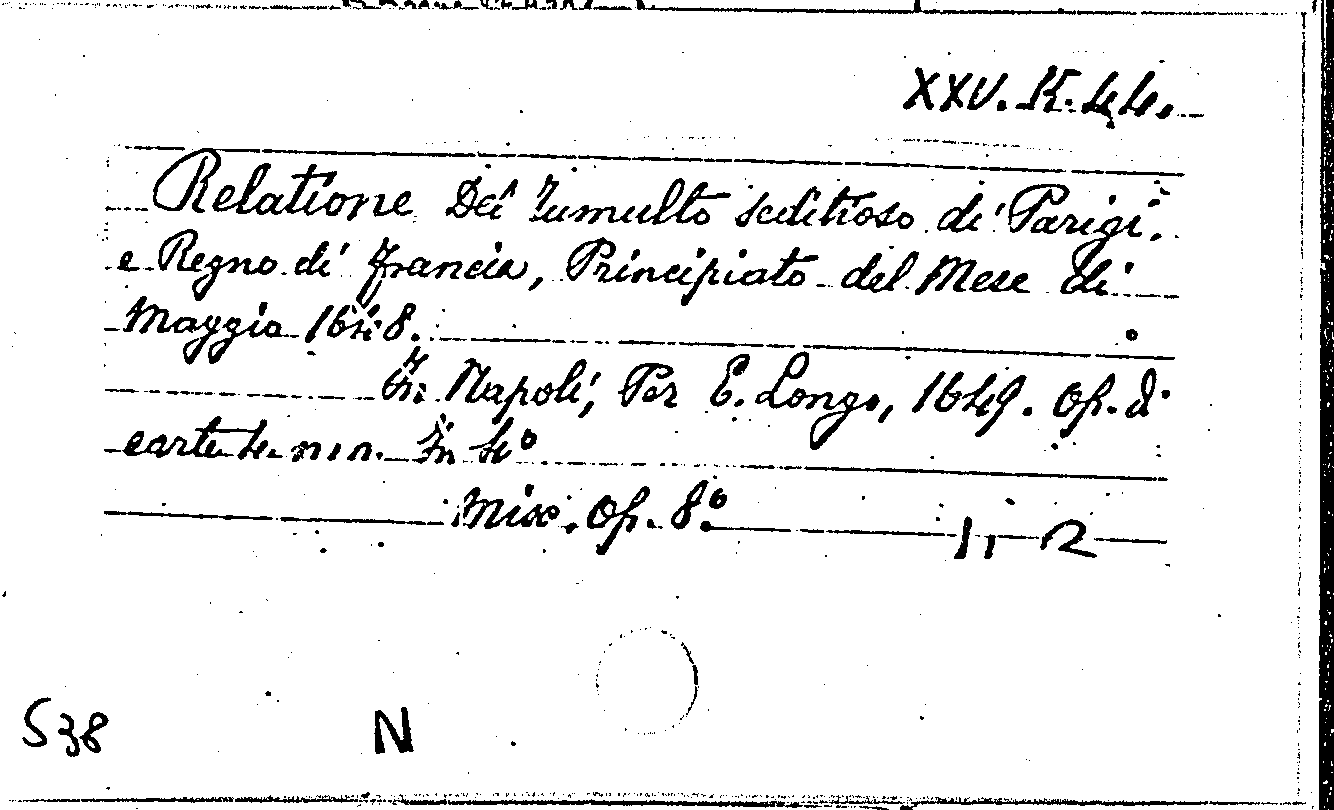 XXV. K. 44.
Relatione Del Tumulto seditioso di Parigi.
e Regno di Francia, Principiato del Mese di
Maggio 1648.
In Napoli, Per E. Longo, 1649. Op. di
carte 4. n n. In 4°
Misc. Op. 8°.
1, 2
S38
N